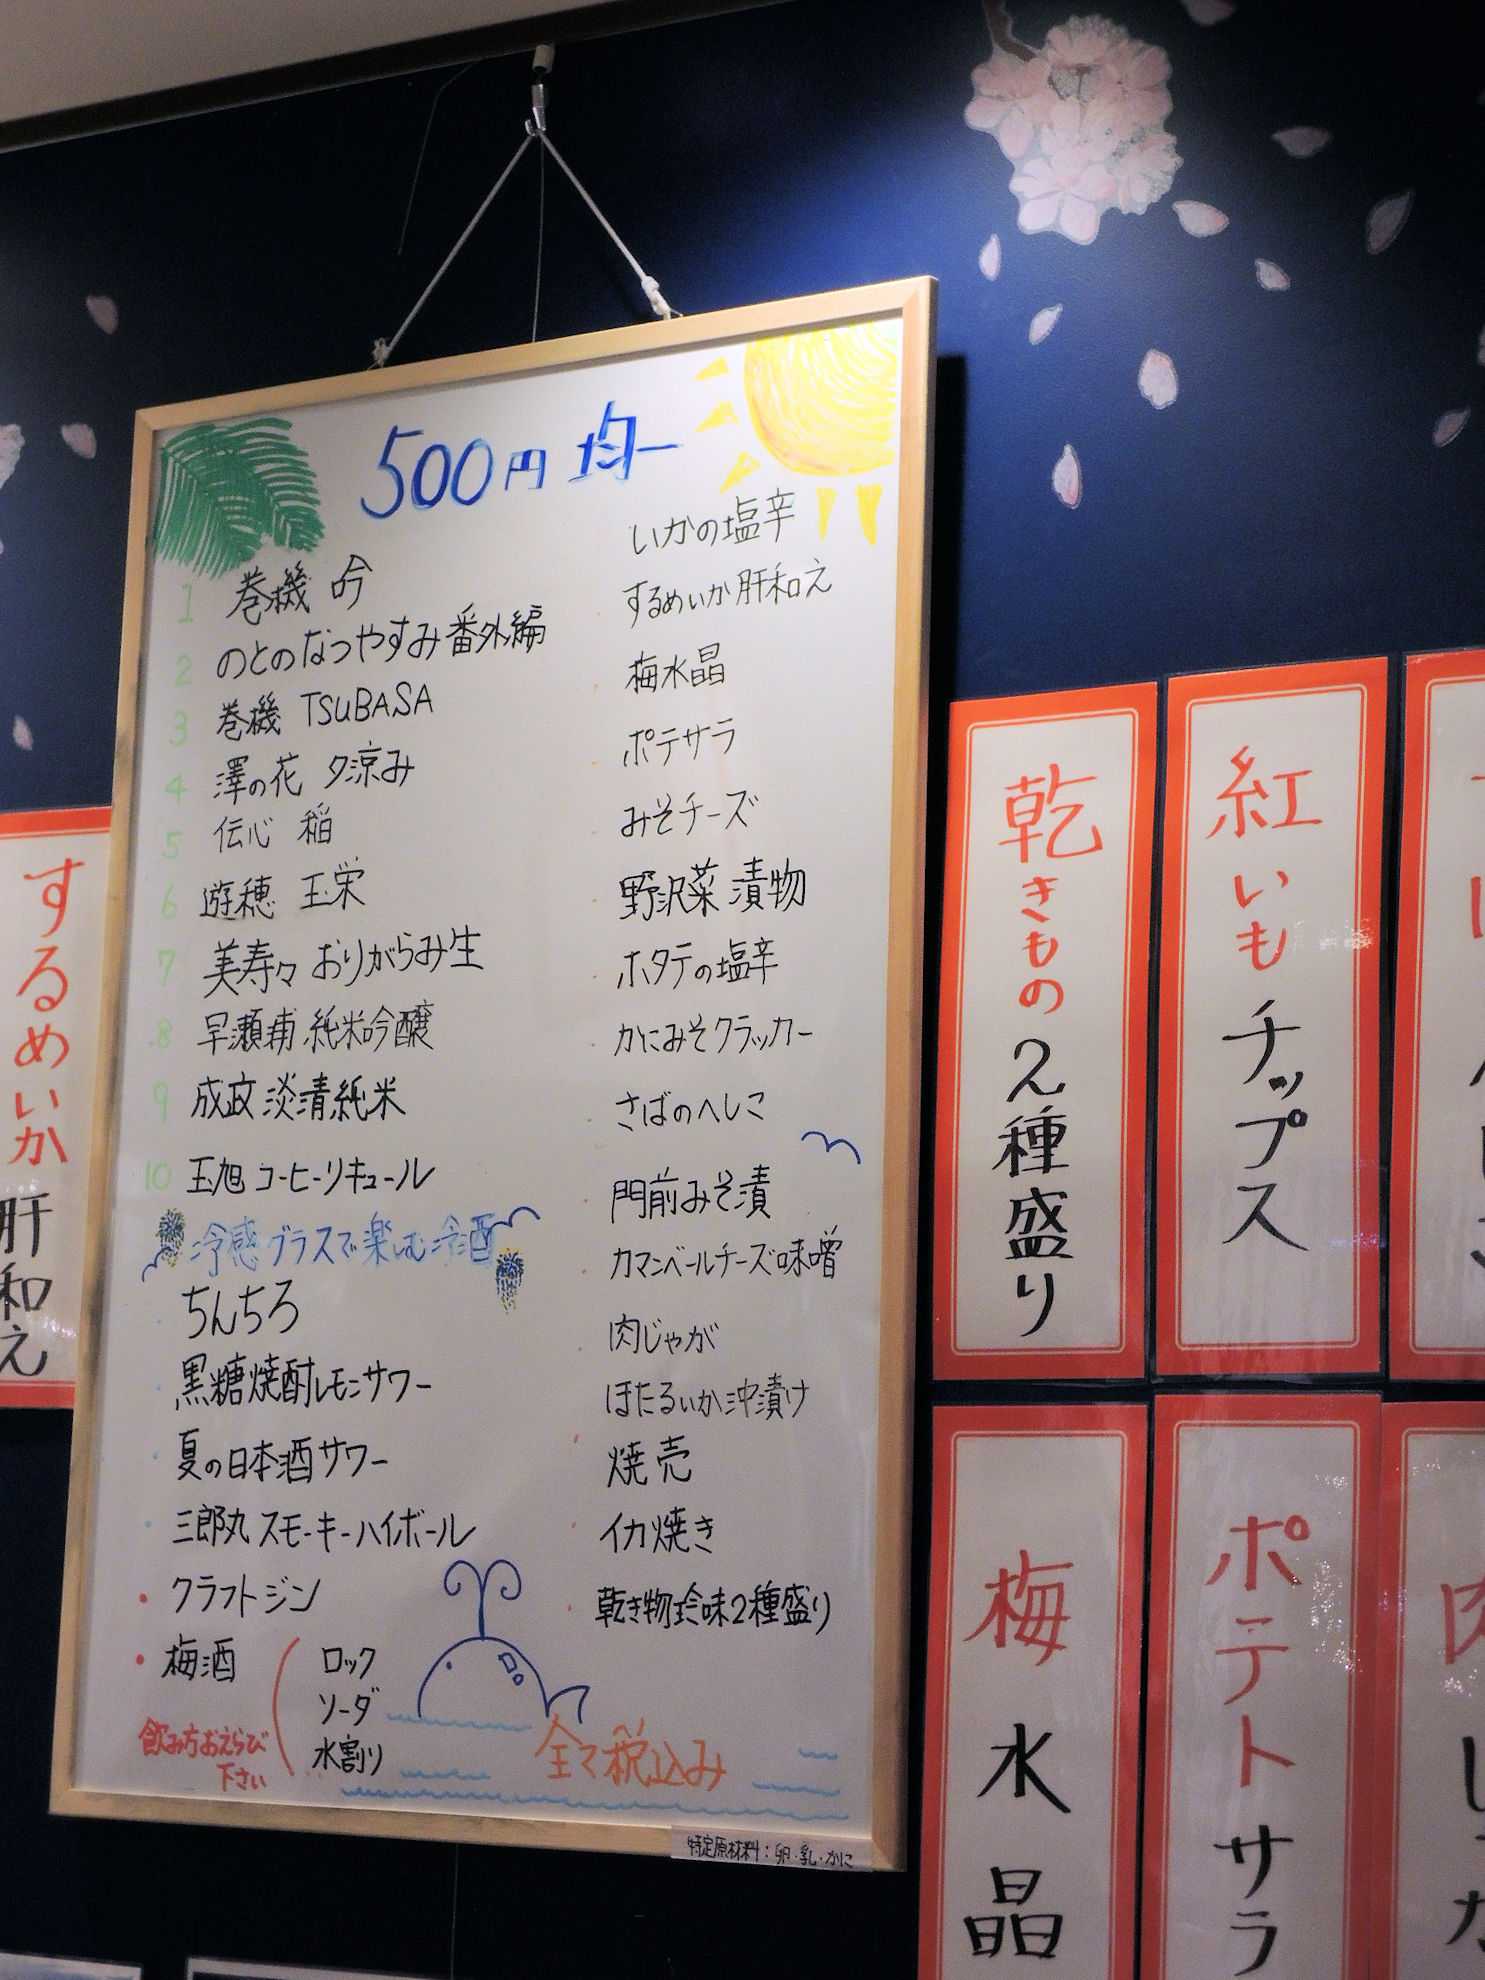 500円 均一
1 巻機 吟
2 のとのなつやすみ番外編
3 巻機 TSUBASA
4 澤の花 夕涼み
5 伝心 稲
6 遊穂 玉栄
7 美寿々 おりがらみ生
8 早瀬浦 純米吟醸
9 成政 淡清純米
10 玉旭 コーヒーリキュール
冷感グラスで楽しむ冷酒
ちんちろ
黒糖焼酎レモンサワー
夏の日本酒サワー
三郎丸 スモーキーハイボール
クラフトジン
梅酒
ロック
ソーダ
水割り
飲み方おえらび
下さい
いかの塩辛
するめいか肝和え
梅水晶
ポテサラ
みそチーズ
野沢菜 漬物
ホタテの塩辛
かにみそクラッカー
さばのへしこ
門前みそ漬
カマンベールチーズ味噌
肉じゃが
ほたるいか沖漬け
焼売
イカ焼き
乾き物珍味2種盛り
全て税込み
特定原材料：卵・乳・かに
するめいか肝和え
乾きもの2種盛り
紅いもチップス
梅水晶
ポテトサラ